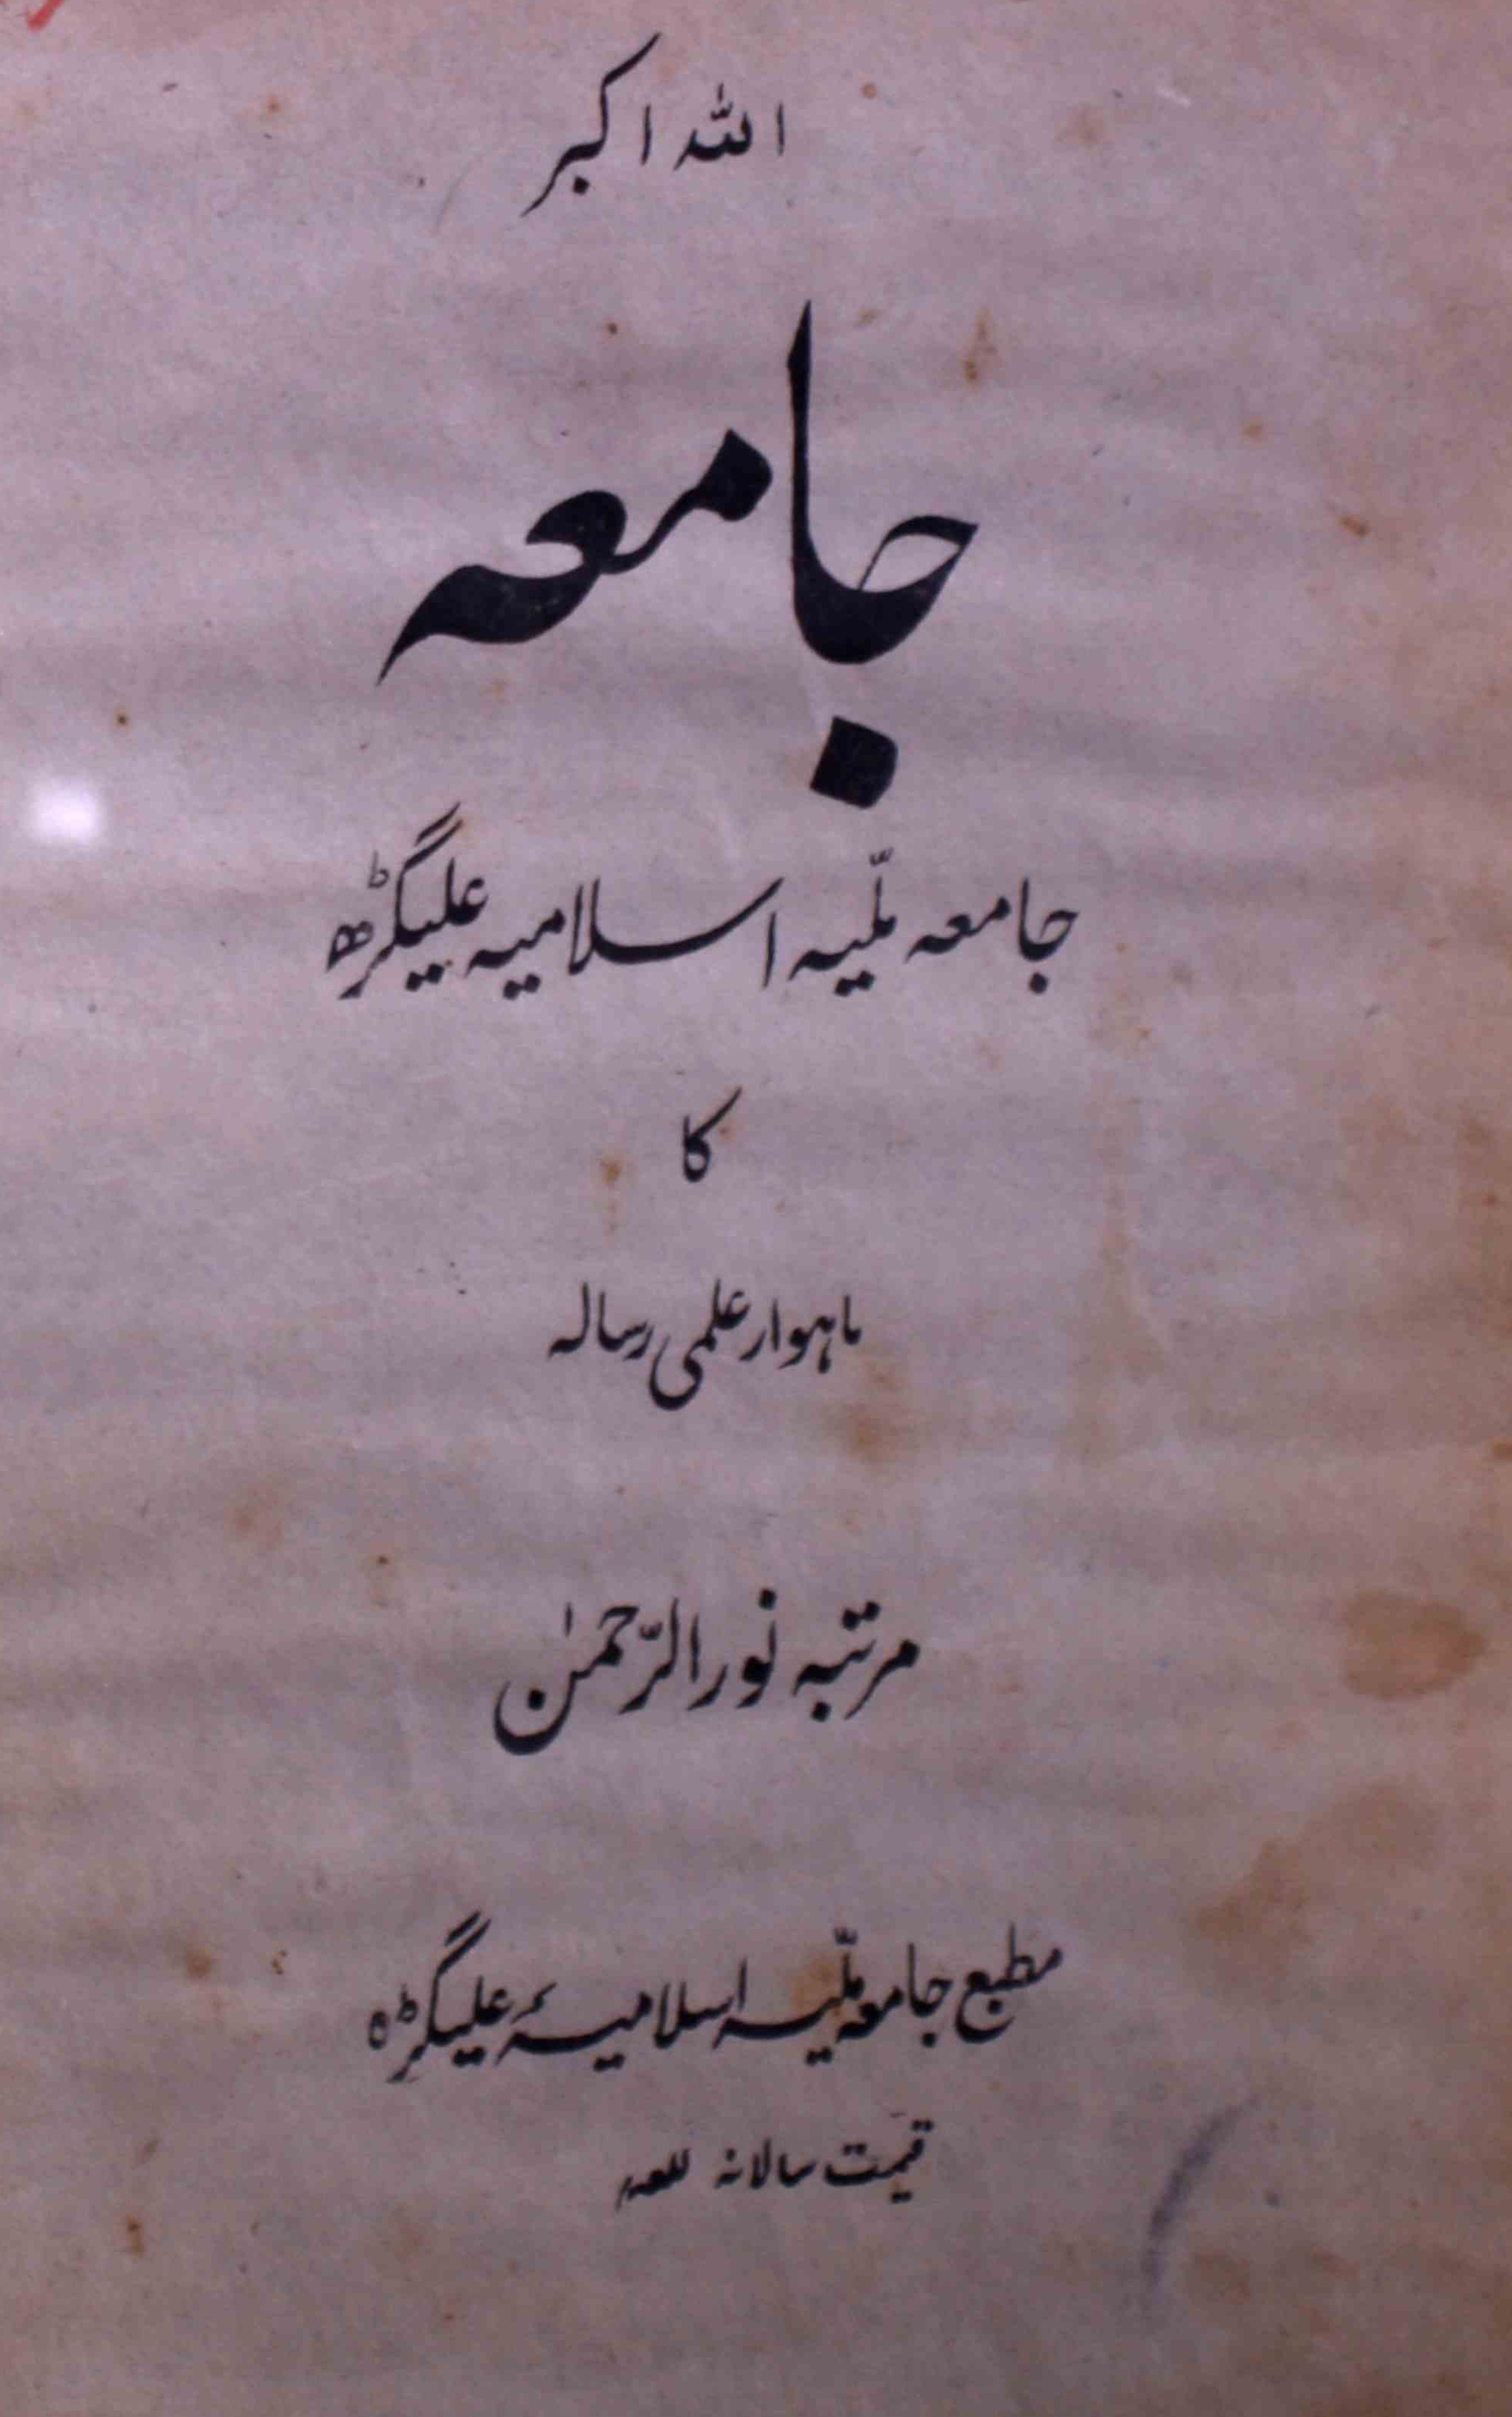 اللہ اکبر
جامعہ
جامعہ ملّیہ اسلامیہ علیگڑھ
کا
ماہوار علمی رسالہ
مرتبہ نور الرّحمٰن
مطبع جامعہ ملّیہ اسلامیہٴ علیگڑہ
قیمت سالانہ